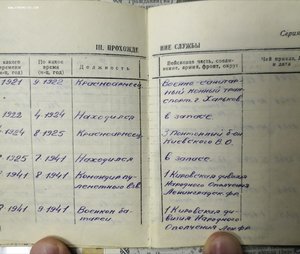 III. ПРОХОЖДЕ
НИЕ СЛУЖБЫ
Серия
С какого времени (м-ц, год)
По какое время (м-ц, год)
Должность
Войсковая часть, соединение, армия, фронт, округ
Чей приказ,
и дата
1921
9 1922
Красноармеец
Военно-санитарный конный транспорт г. Харьков
1922
4 1924
Находился
в запасе
1924
8 1925
Красноармеец
3 Понтонный б-он Киевского В.О.
1925
7 1941
Находился
в запасе
1941
8 1941
Командир пулеметного
1 Кировская дивизия Народного Ополчения
1941
9 1941
Военком
1 Кировская дивизия Народного Ополчения